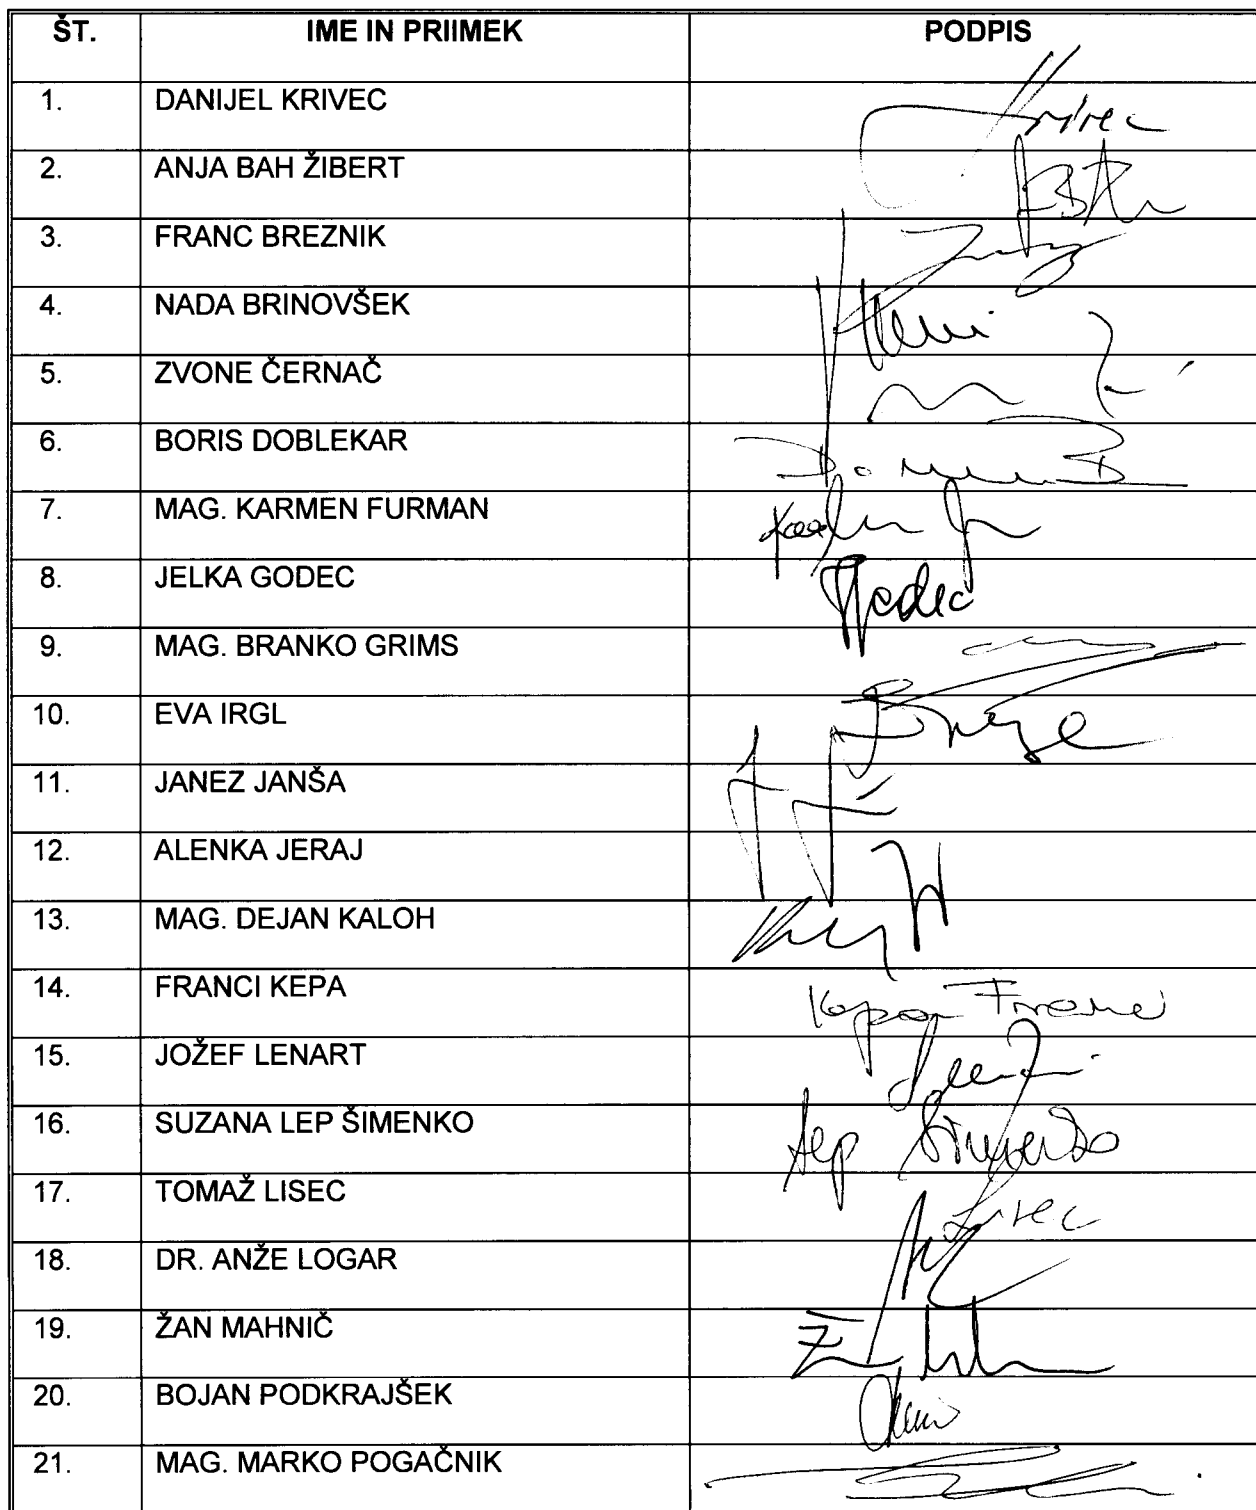 ŠT. IME IN PRIIMEK PODPIS
1. DANIJEL KRIVEC Krivec
2. ANJA BAH ŽIBERT
3. FRANC BREZNIK
4. NADA BRINOVŠEK
5. ZVONE ČERNAČ
6. BORIS DOBLEKAR
7. MAG. KARMEN FURMAN
8. JELKA GODEC Godec
9. MAG. BRANKO GRIMS
10. EVA IRGL
11. JANEZ JANŠA
12. ALENKA JERAJ
13. MAG. DEJAN KALOH
14. FRANCI KEPA Kepa Franci
15. JOŽEF LENART
16. SUZANA LEP ŠIMENKO Lep Šimenko
17. TOMAŽ LISEC Lisec
18. DR. ANŽE LOGAR
19. ŽAN MAHNIČ
20. BOJAN PODKRAJŠEK
21. MAG. MARKO POGAČNIK